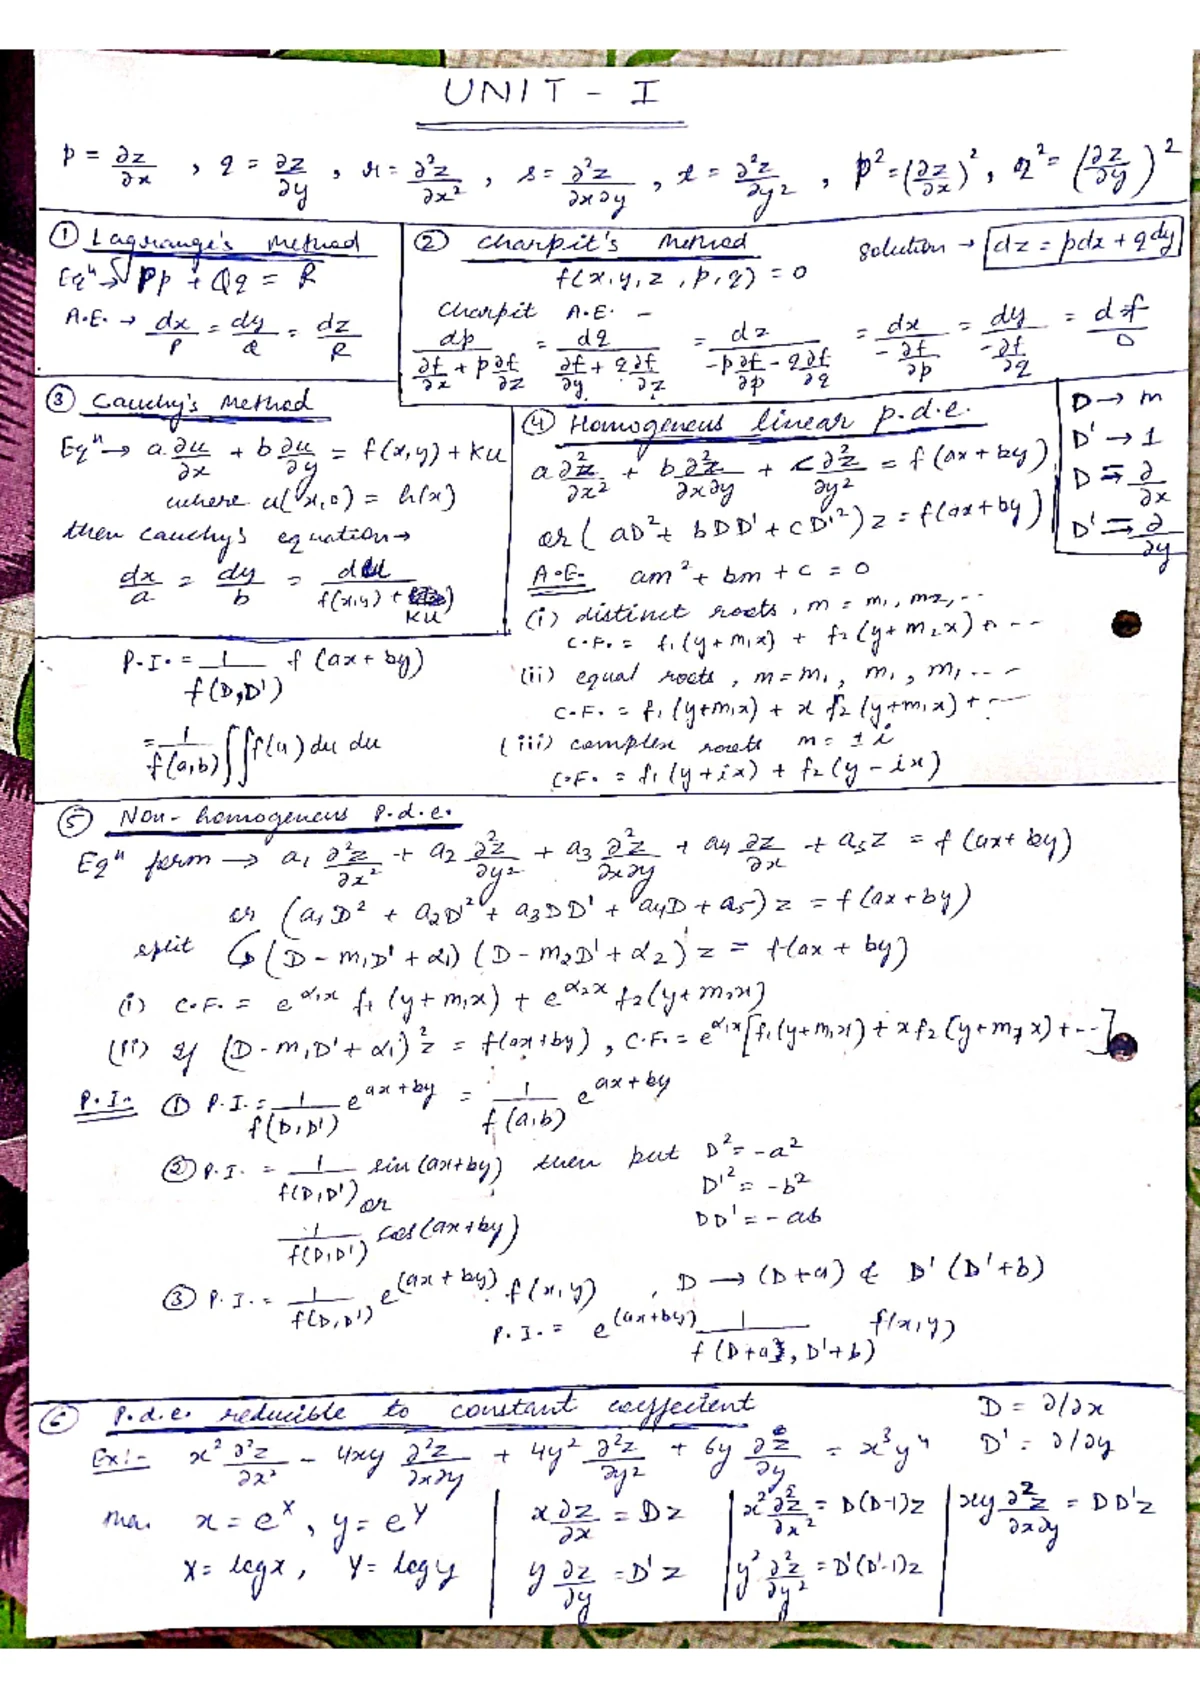 UNIT - I
p = ∂z/∂x , q = ∂z/∂y , r = ∂²z/∂x² , s = ∂²z/∂x∂y , t = ∂²z/∂y² , p² = (∂z/∂x)² , q² = (∂z/∂y)²
① Lagrange's Method
Eqⁿ → Pp + Qq = R
A.E. → dx/P = dy/Q = dz/R
② Charpit's Method
solution → dz = pdx + qdy
f(x, y, z, p, q) = 0
Charpit A.E. -
dp/(∂f/∂x + p∂f/∂z) = dq/(∂f/∂y + q∂f/∂z) = dz/(-p∂f/∂p - q∂f/∂q) = dx/(-∂f/∂p) = dy/(-∂f/∂q) = dF/0
③ Cauchy's Method
Eqⁿ → a ∂u/∂x + b ∂u/∂y = f(x,y) + Ku
where u(x,0) = h(x)
then Cauchy's equation →
dx/a = dy/b = du/(f(x,y) + Ku)
④ Homogeneous linear p.d.e.
a ∂²z/∂x² + b ∂²z/∂x∂y + c ∂²z/∂y² = f(ax + by)
or (aD² + bDD' + cD'²) z = f(ax + by)
D → m
D' → 1
D = ∂/∂x
D' = ∂/∂y
A.E. am² + bm + c = 0
(i) distinct roots, m = m₁, m₂, --
C.F. = f₁(y + m₁x) + f₂(y + m₂x) + ---
(ii) equal roots, m = m₁, m₁, m₁ ---
C.F. = f₁(y+m₁x) + x f₂(y+m₁x) + ---
(iii) complex roots m = ± i
C.F. = f₁(y + ix) + f₂(y - ix)
P.I. = 1/f(D,D') f(ax + by)
= 1/f(a,b) ∫∫ f(u) du du
⑤ Non-homogeneus p.d.e.
Eqⁿ form → a₁ ∂²z/∂x² + a₂ ∂²z/∂y² + a₃ ∂²z/∂x∂y + a₄ ∂z/∂x + a₅z = f(ax + by)
or (a₁D² + a₂D'² + a₃DD' + a₄D + a₅) z = f(ax + by)
split ↪ (D - m₁D' + α₁) (D - m₂D' + α₂) z = f(ax + by)
(i) C.F. = e^α₁x f₁(y + m₁x) + e^α₂x f₂(y + m₂x)
(ii) If (D - m₁D' + α₁)² z = f(ax + by), C.F. = e^α₁x [f₁(y + m₁x) + x f₂(y + m₁x) + --]
P.I. ① P.I. = 1/f(D,D') e^ax + by = 1/f(a,b) e^ax + by
② P.I. = 1/f(D,D') sin(ax+by) then put D² = -a²
D'² = -b²
DD' = - ab
or
1/f(D,D') cos(ax+by)
③ P.I. = 1/f(D,D') e^(ax + by) f(x,y) , D → (D + a) & D' (D' + b)
P.I. = e^(ax+by) 1/f(D+a, D'+b) f(x,y)
⑥ P.d.e. reducible to constant coeffecient
D = ∂/∂x
D' = ∂/∂y
Ex:- x² ∂²z/∂x² - 4xy ∂²z/∂x∂y + 4y² ∂²z/∂y² + 6y ∂z/∂y = x³y⁴
x = e^X , y = e^Y
X = logx , Y = logy
x ∂z/∂x = Dz
y ∂z/∂y = D'z
x² ∂²z/∂x² = D(D-1)z
y² ∂²z/∂y² = D'(D'-1)z
xy ∂²z/∂x∂y = DD'z